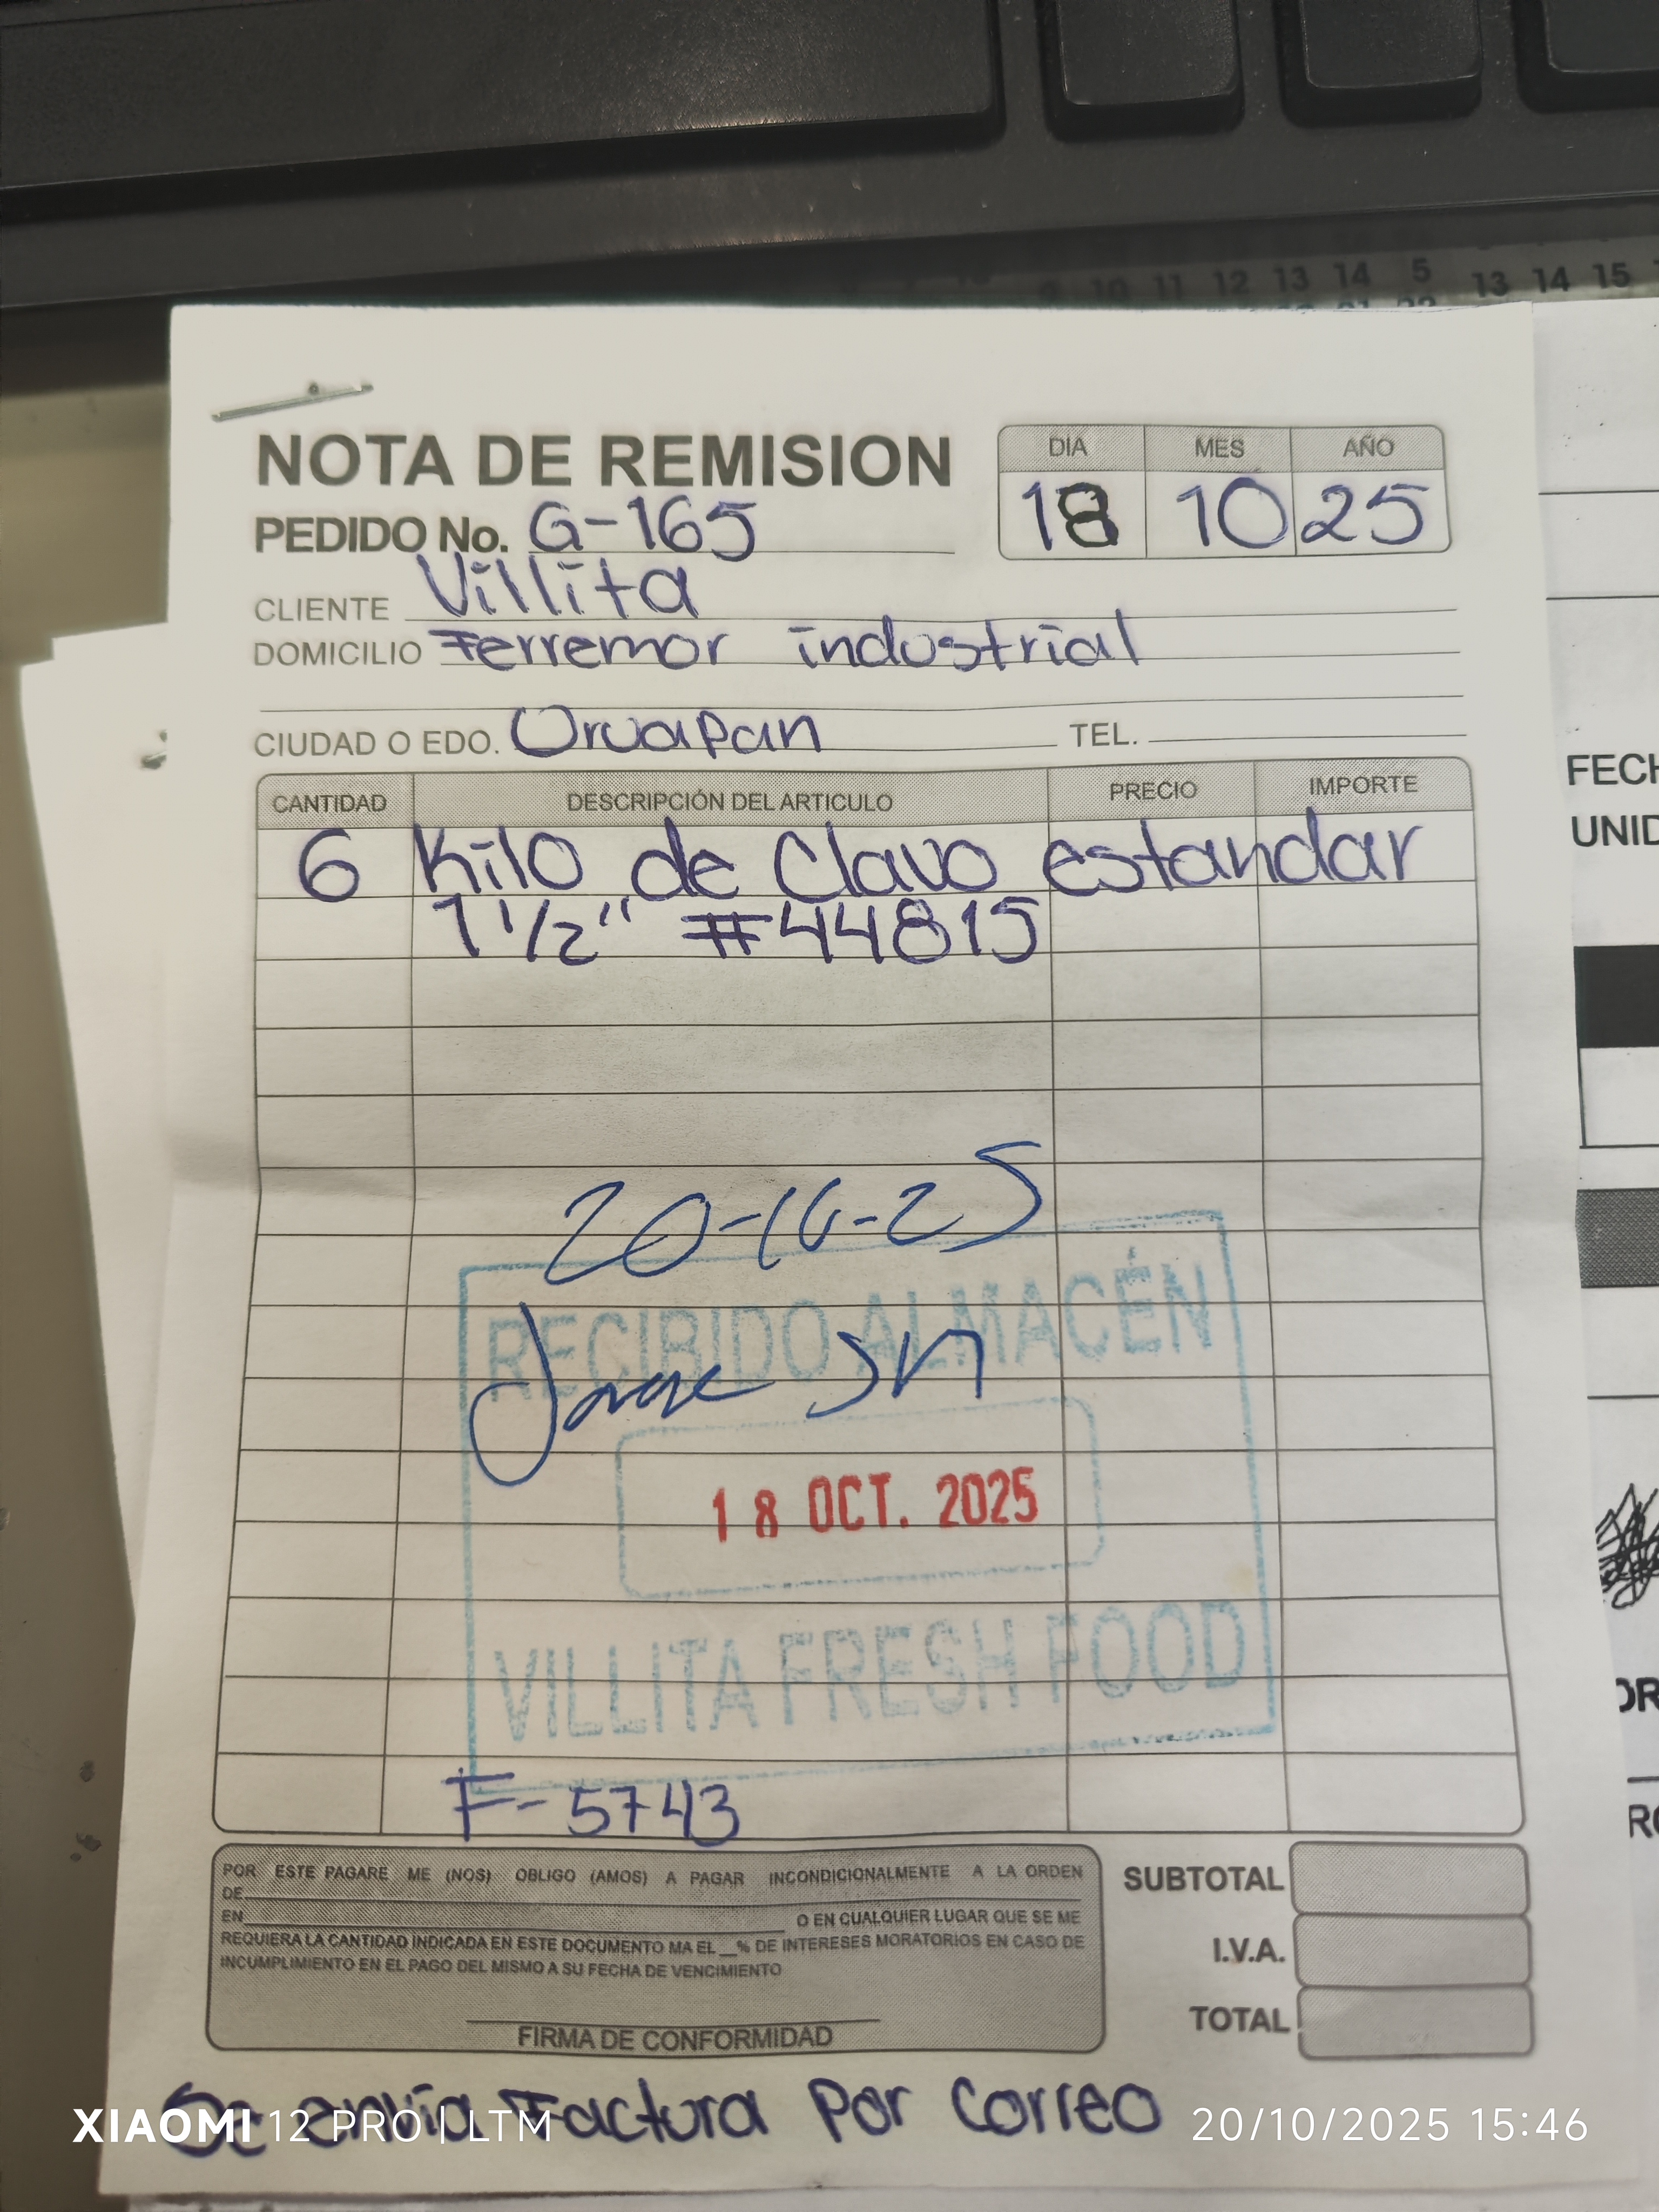 9 10 11 12 13 14 5 13 14 15
NOTA DE REMISION
DIA MES AÑO
18 10 25
PEDIDO No. G-165
CLIENTE Villita
DOMICILIO Ferremor industrial
CIUDAD O EDO. Uruapan TEL.
CANTIDAD DESCRIPCIÓN DEL ARTICULO PRECIO IMPORTE
6 Kilo de Clavo estandar
1 1/2" #44815
20-10-25
RECIBIDO ALMACÉN
18 OCT. 2025
VILLITA FRESH FOOD
F-5743
POR ESTE PAGARE ME (NOS) OBLIGO (AMOS) A PAGAR INCONDICIONALMENTE A LA ORDEN
DE
EN O EN CUALQUIER LUGAR QUE SE ME
REQUIERA LA CANTIDAD INDICADA EN ESTE DOCUMENTO MA EL __% DE INTERESES MORATORIOS EN CASO DE
INCUMPLIMIENTO EN EL PAGO DEL MISMO A SU FECHA DE VENCIMIENTO
FIRMA DE CONFORMIDAD
SUBTOTAL
I.V.A.
TOTAL
Se envía Factura Por Correo
XIAOMI 12 PRO | LTM 20/10/2025 15:46
FECH
UNID